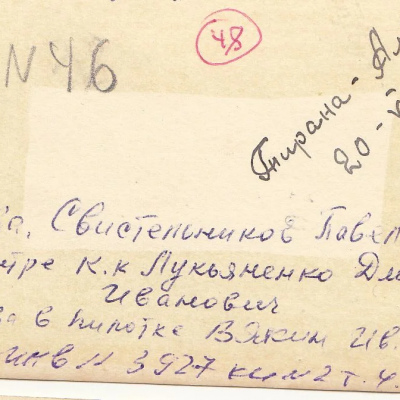 48
N 46
Тирана - Ал
20 -
ва, Свистельников Павел
нтре к.к Лукьяненко Дм
Иванович
ва в пилотке Вякин Ив.
инв N 3927 ким 2 т. ч.